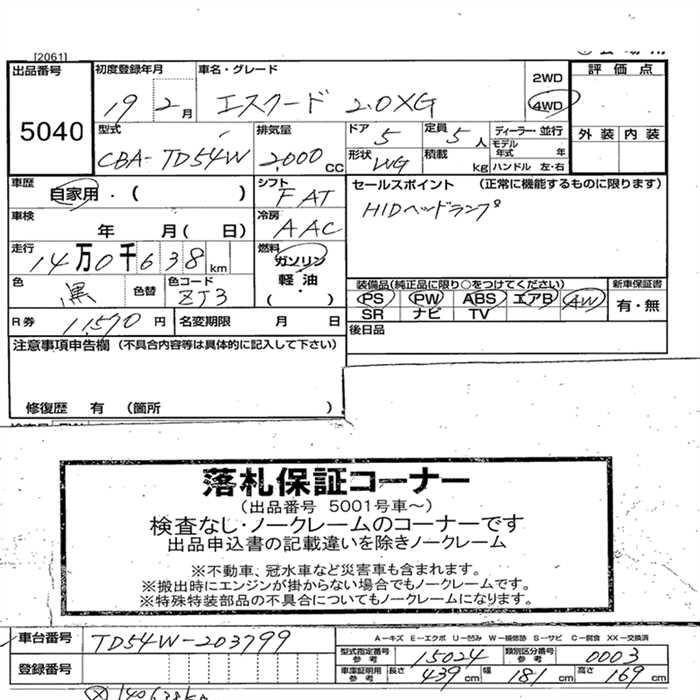 [2061]
出品番号 初度登録年月 車名・グレード 2WD 評価点
5040 19 2月 エスクード 2.0XG 4WD
外装 内装
型式 排気量 ドア 5 定員 5人 ディーラー・並行
モデル年式 年
CBA-TD54W 2,000cc 形状 WG 積載 kg ハンドル 左・右
車歴 自家用・( ) シフト FAT セールスポイント (正常に機能するものに限ります)
車検 年 月(日) 冷房 AAC HIDヘッドランプ
走行 14万0千638km 燃料 ガソリン
軽油
( ・ )
色 黒 色替 色コード ZJ3 装備品(純正品に限り○をつけてください) 新車保証書
PS PW ABS エアB AW 有・無
SR ナビ TV
R券 11,570円 名変期限 月 日 後日品
注意事項申告欄 (不具合内容等は具体的に記入して下さい)
修復歴 有 (箇所 )
落札保証コーナー
(出品番号 5001号車～)
検査なし・ノークレームのコーナーです
出品申込書の記載違いを除きノークレーム
※不動車、冠水車など災害車も含まれます。
※搬出時にエンジンが掛からない場合でもノークレームです。
※特殊特装部品の不具合についてもノークレームになります。
車台番号 TD54W-203799 A－キズ E－エクボ U－凹み W－補修跡 S－サビ C－腐食 XX－交換済
型式指定番号 参考 15024 類別区分番号 参考 0003
登録番号 車庫証明用 参考 長さ 439cm 幅 181cm 高さ 169cm
140638km